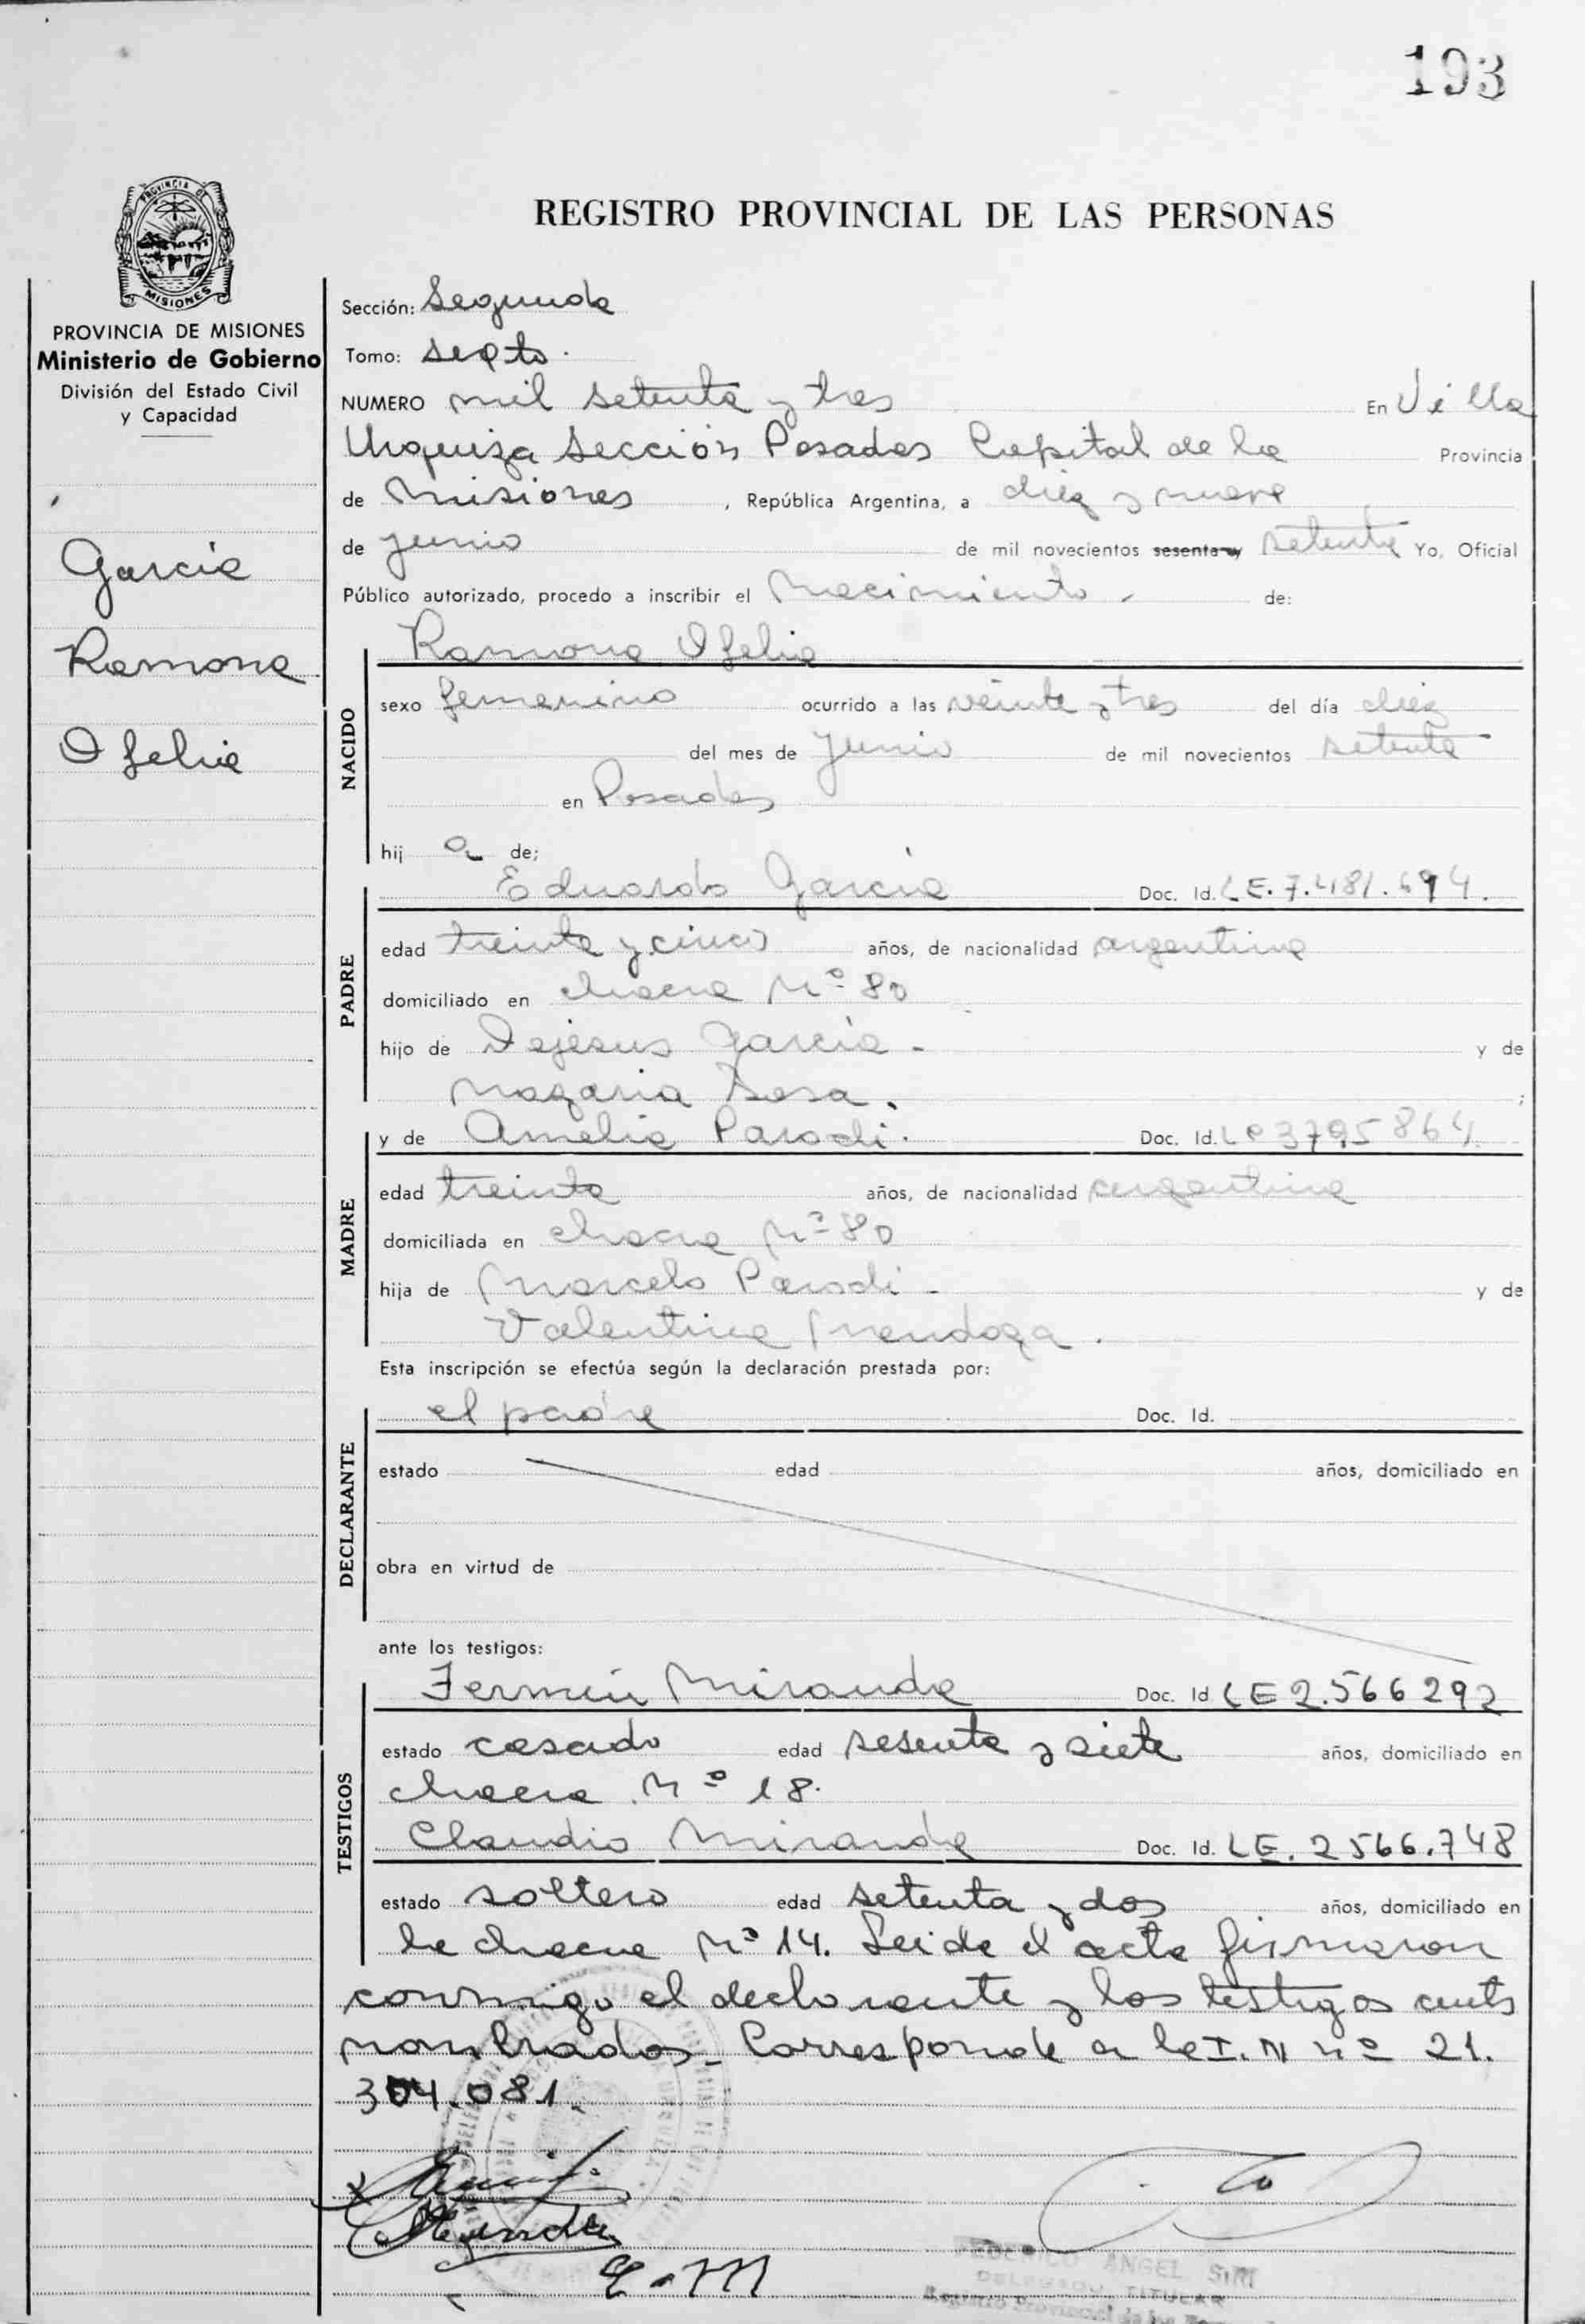 193
PROVINCIA DE
MISIONES
REGISTRO PROVINCIAL DE LAS PERSONAS
PROVINCIA DE MISIONES
Ministerio de Gobierno
División del Estado Civil
y Capacidad
García
Ramona
Ofelia
Sección: Segunda
Tomo: septo.
NUMERO mil setenta y tres En Villa
Urquiza Sección Posadas Capital de la Provincia
de Misiones, República Argentina, a diez y nueve
de junio de mil novecientos sesenta y setenta Yo, Oficial
Público autorizado, procedo a inscribir el Nacimiento - de:
NACIDO
Ramona Ofelia
sexo femenino ocurrido a las veinte y tres del día diez
del mes de junio de mil novecientos setenta
en Posadas
hij a de;
PADRE
Eduardo García Doc. Id. LE. 7.481.694.
edad treinta y cinco años, de nacionalidad argentina
domiciliado en chacra Nº 80
hijo de Dejesus García - y de
Nazaria Sosa. ;
MADRE
y de Amelia Parodi. Doc. Id. Lc 3795864.
edad treinta años, de nacionalidad argentina
domiciliada en chacra Nº 80
hija de Marcelo Parodi - y de
Valentina Mendoza.
Esta inscripción se efectúa según la declaración prestada por:
DECLARANTE
el padre Doc. Id.
estado edad años, domiciliado en
obra en virtud de
ante los testigos:
TESTIGOS
Fermín Miranda Doc. Id LE 2.566292
estado casado edad sesenta y siete años, domiciliado en
chacra Nº 18.
Claudio Miranda Doc. Id. LE. 2566.748
estado soltero edad setenta y dos años, domiciliado en
la chacra Nº 14. Leida el acta firmaron
conmigo el declarante y los testigos ants
nombrados - Corresponde a la I. N nº 21.
304.081.
E-M
FEDERICO ANGEL SIRI
DELEGADO TITULAR
Registro Provincial de las